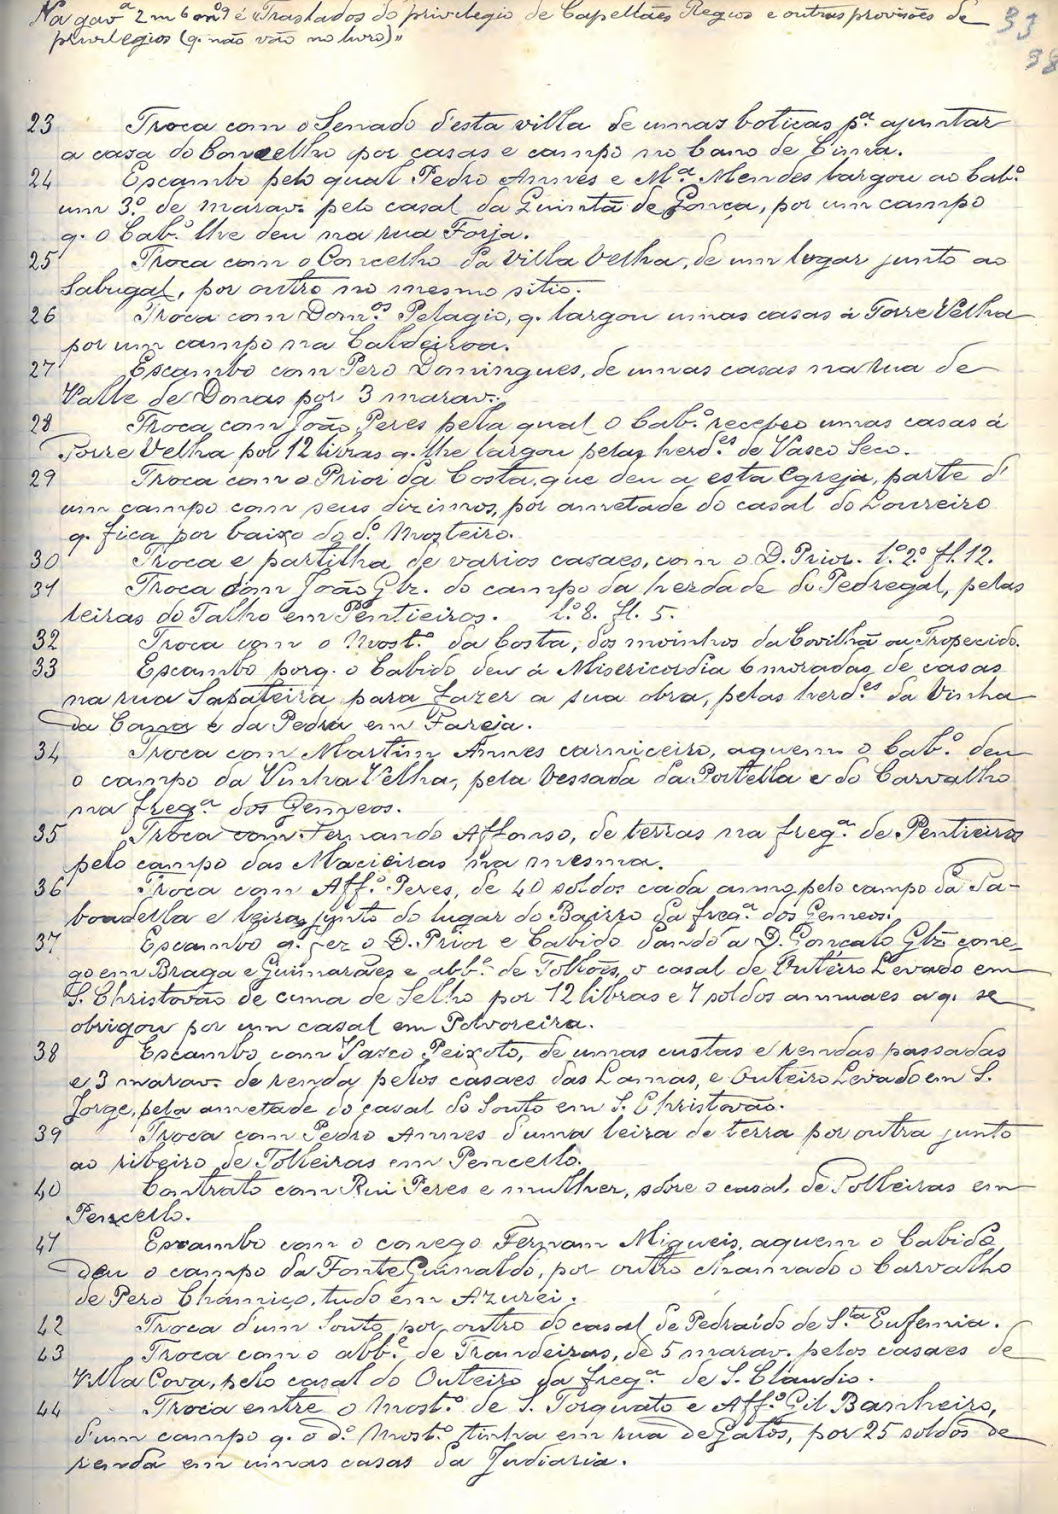 Na gav.ª 2 m 6 o nº 9 é «Traslados do privilegio de Capellães Regios e outras provisões de
privilegios (q. não vão no livro)»
33
38
23 Troca com o Senado d'esta villa de umas boticas p.ª ajuntar
a casa do Concelho por casas e campo no Cano de Cima.
24 Escambo pelo qual Pedro Annes e M.ª Mendes largou ao Cab.º
um 3.º de marav. pelo casal da Quintã de Gonça, por um campo
q. o Cab.º lhe deu na rua Forja.
25 Troca com o Concelho da Villa Velha, de um logar junto ao
Sabugal, por outro no mesmo sitio.
26 Troca com Dom.os Pelagio, q. largou umas casas á Torre Velha
por um campo na Caldeiroa.
27 Escambo com Pero Domingues, de umas casas na rua de
Valle de Donas por 3 marav.
28 Troca com João Peres pela qual o Cab.º recebeo umas casas á
Torre Velha por 12 livras q. lhe largou pelas herd.es de Vasco Seco.
29 Troca com o Prior da Costa, que deu a esta Egreja, parte d'
um campo com seus dizimos, por ametade do casal do Loureiro
q. fica por baixo do d.º Mosteiro.
30 Troca e partilha de varios casaes, com o D. Prior. l.º 2.º fl. 12.
31 Troca com João Glz. do campo da herdade do Pedregal, pelas
leiras do Talho em Pentieiros. l.º 8. fl. 5.
32 Troca com o Most.º da Costa, dos moinhos da Covilhã ou Tropecido.
33 Escambo porq. o Cabido deu á Misericordia 6 moradas de casas
na rua Sapateira, para fazer a sua obra, pelas herd.es da Vinha
da Cana e da Pedra em Fareja.
34 Troca com Martim Annes carniceiro, aquem o Cab.º deu
o campo da Vinha Velha, pela Vessada da Portella e do Carvalho
na freg.ª dos Gemeos.
35 Troca com Fernando Affonso, de terras na freg.ª de Pentieiros
pelo campo das Macieiras na mesma.
36 Troca com Aff.º Peres, de 40 soldos cada anno, pelo campo da Ta-
boadella e leira, junto do lugar do Bairro da freg.ª dos Gemeos.
37 Escambo q. fez o D. Prior e Cabido dando a D. Gonçalo Glz cone-
go em Braga e Guimarães e abb.e de Tolhões, o casal de Outeiro Levado em
S. Christovão de cima de Selho por 12 libras e 7 soldos annuaes a q. se
obrigou por um casal em Polvoreira.
38 Escambo com Vasco Peixoto, de umas custas e rendas passadas
e 3 marav. de renda pelos casaes das Lamas, e Outeiro Levado em S.
Jorge, pela ametade do casal do Souto em S. Christovão.
39 Troca com Pedro Annes d'uma leira de terra por outra junto
ao ribeiro de Tolheiras em Pencello.
40 Contrato com Rui Peres e mulher, sobre o casal de Polheiras em
Pencello.
41 Escambo com o conego Fernam Migueis, aquem o Cabido
deu o campo da Fonte Guinaldo, por outro chamado o Carvalho
de Pero Chamiço, tudo em Azurei.
42 Troca d'um Souto, por outro do casal de Pedraido de S.ta Eufemia.
43 Troca com o abb.e de Trandeiras, de 5 marav. pelos casaes de
Villa Cova, pelo casal do Outeiro da freg.ª de S. Claudio.
44 Troca entre o Most.º de S. Torquato e Aff.º Gil Banheiro,
d'um campo q. o d.º Most.º tinha em rua de Gatos, por 25 soldos de
renda em umas casas da Judiaria.